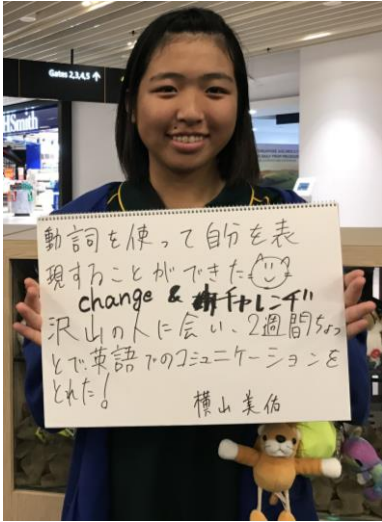 Gates 2,3,4,5 ↑
dSmith
動詞を使って自分を表
現することができた
change & チャレンジ
沢山の人に会い、2週間ちょっ
とで英語でのコミュニケーションを
とれた!
横山 美佑